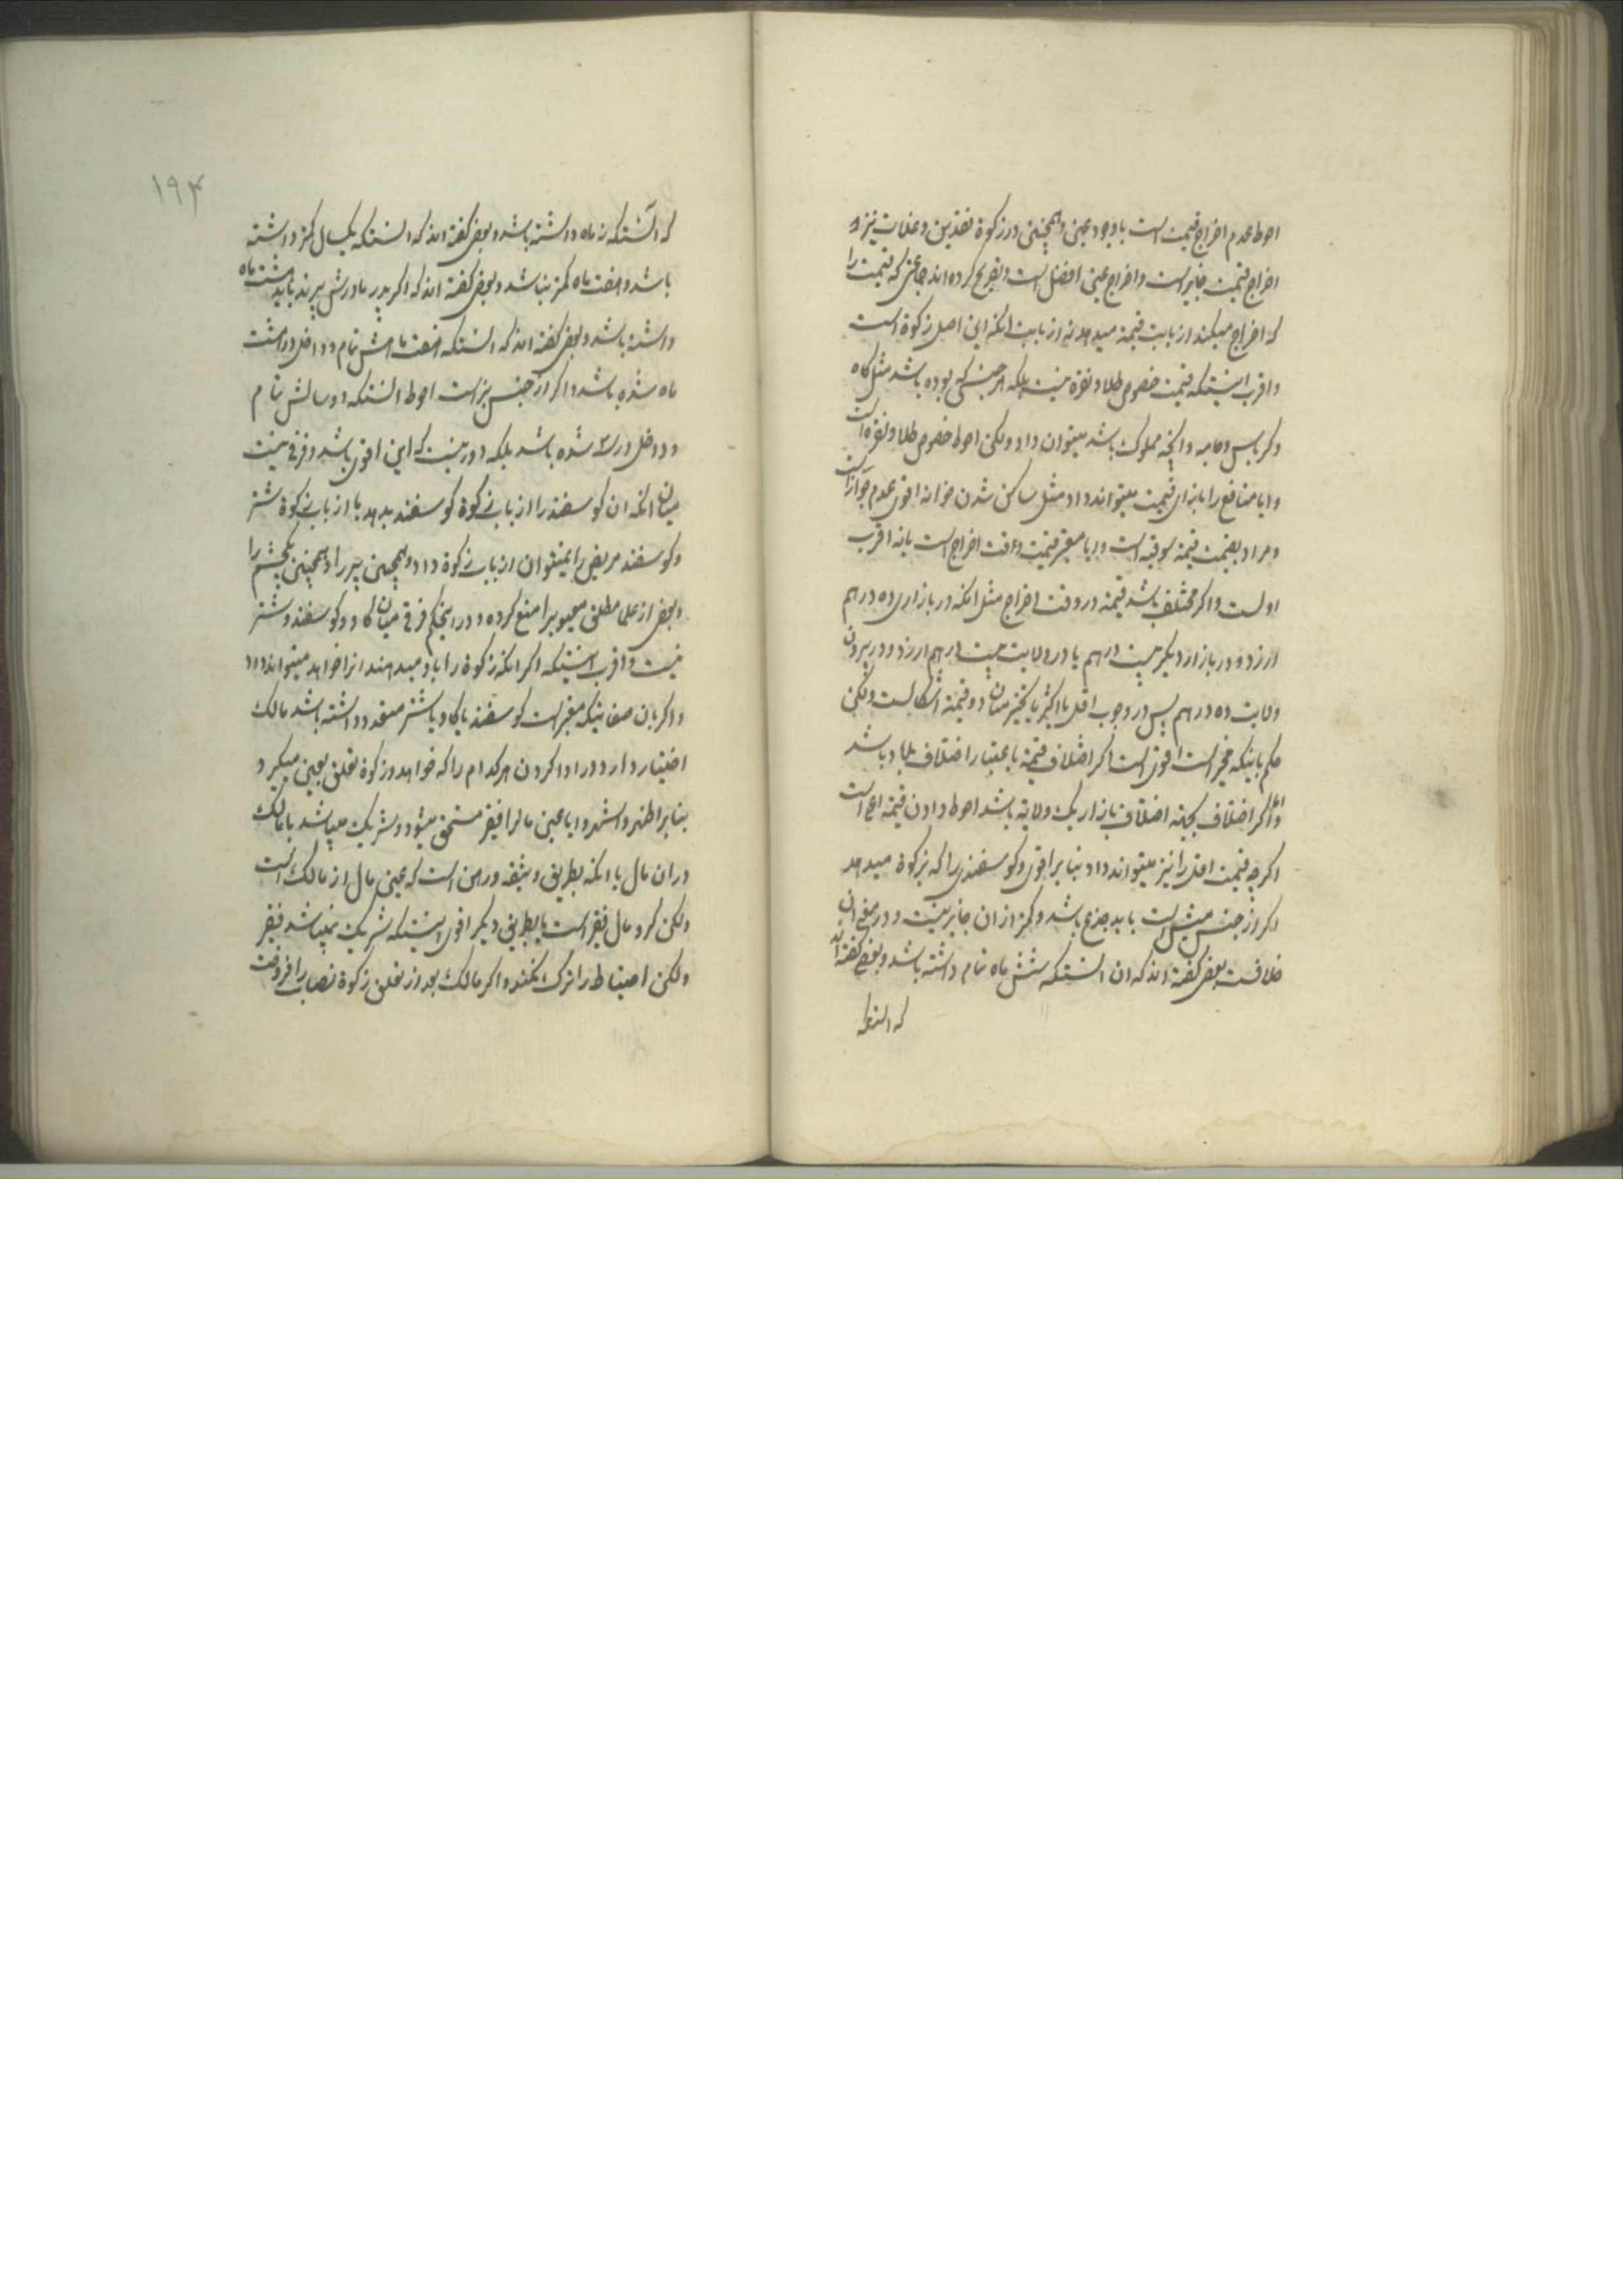 احوط عدم اخراج قیمت است با وجود عین و همچنین در زکوة نقدین و غلات نیز و
اخراج قیمت جایز است و اخراج عین افضل است و تصریح کرده اند جماعتی که قیمت را
که اخراج میکند از بابت قیمة میدهد نه از بابت انکه این اصل زکوة است
و اقرب اینستکه قیمت خصوص طلا و نقره نیست بلکه هر جنسی که بوده باشد مثل کاه
و کرباس و جامه و انچه مملوک باشد میتوان داد ولکن احوط خصوص طلا و نقره است
و ایا منافع را بازای قیمت میتواند داد مثل ساکن شدن خوانه اقوی عدم جواز است
و مراد بقیمت قیمة سوقیه است و ایا معتبر قیمت وقت اخراج است یا نه اقرب
اولست و اکر مختلف باشد قیمة در وقت اخراج مثل انکه در بازاری ده درهم
ارزد و در بازار دیکر بیست درهم یا در ولایت بیست درهم ارزد و در بیرون
ولایت ده درهم پس در وجوب اقل یا اکثر یا تخییر میان دو قیمة اشکالست ولکن
حکم باینکه مخیر است اقوی است اکر اختلاف قیمة باعتبار اختلاف بلاد باشد
و اما اکر اختلاف بجهة اختلاف بازار یک ولایة باشد احوط دادن قیمة اعلا است
اکرچه قیمت اقل را نیز میتواند داد بنا بر اقوی و کوسفندی را که بزکوة میدهد
اکر از جنس میش است باید جذع باشد و کمتر از ان جایز نیست و در معنی ان
خلافست بعضی کفته اند که ان انستکه شش ماه تمام داشته باشد و بعضی کفته اند
که انستکه
۱۹۴
که آنستکه نه ماه داشته باشد و بعضی کفته اند که انستکه یکسال کمتر داشته
باشد و هفت ماه کمتر نباشد و بعضی کفته اند که اکر پدر و مادرش پیرند باید هشت ماه
داشته باشد و بعضی کفته اند که انستکه هفت ماهش تمام و داخل در هشت
ماه شده باشد و اکر از جنس بز است احوط انستکه دو سالش تمام
و داخل در سه شده باشد بلکه دور نیست که این اقوی باشد و فرقی نیست
میان انکه ان کوسفند را از باب زکوة کوسفند بدهد یا از باب زکوة شتر
و کوسفند مریض را نمیتوان از باب زکوة داد و همچنین پیر را و همچنین یکچشم را
و بعضی از علما مطلق معیوب را منع کرده و در اینحکم فرقی میان کاو و کوسفند و شتر
نیست و اقرب اینستکه اکر انکه زکوة را باو میدهند انرا خواهد میتواند داد
و اکر بان صفاتیکه معتبر است کوسفند یا کاو یا شتر متعدد داشته باشد مالک
اختیار دارد در ادا کردن هرکدام را که خواهد و زکوة تعلق بعین میکیرد
بنا بر اظهر و اشهر و ایا عین مال را فقیر مستحق میشود و شریک میباشد با مالک
در ان مال یا انکه بطریق وثیقه و رهن است که عین مال از مالک است
ولکن کرو مال فقیر است یا بطریق دیکر اقوی اینستکه شریک میباشد فقیر
ولکن احتیاط را ترک نکند و اکر مالک بعد از تعلق زکوة نصاب را فروخت